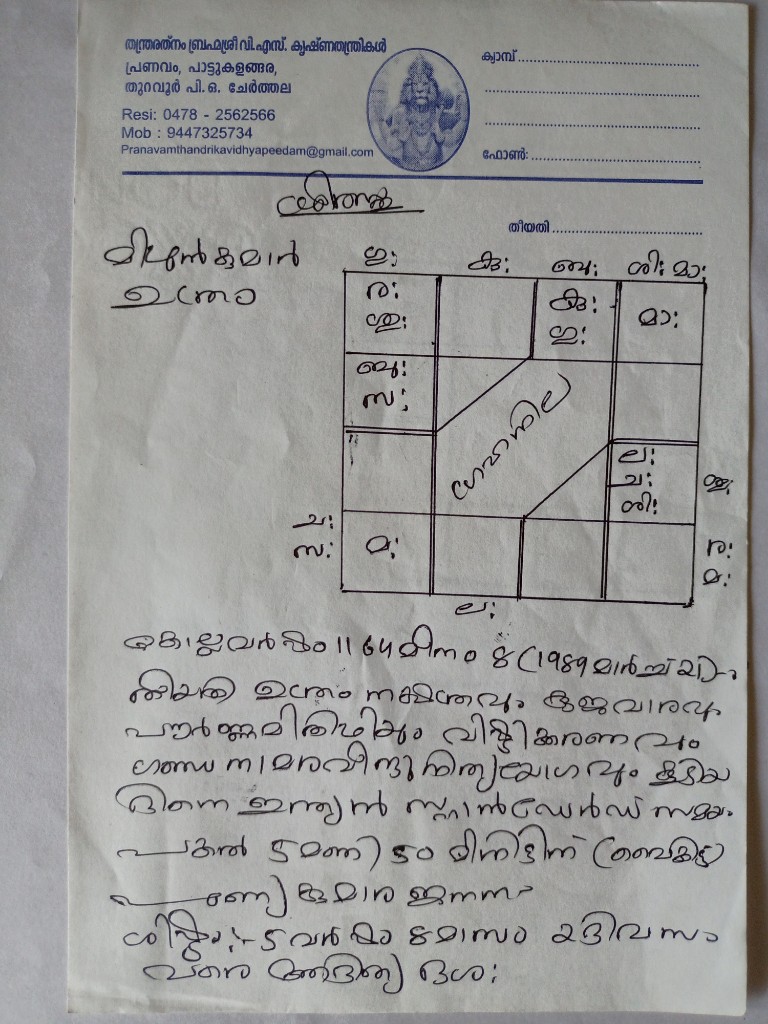 തന്ത്രരത്നം ബ്രഹ്മശ്രീ വി.എസ്. കൃഷ്ണതന്ത്രികൾ
പ്രണവം, പാട്ടുകളങ്ങര,
തുറവൂർ പി.ഒ. ചേർത്തല
Resi: 0478 - 2562566
Mob : 9447325734
Pranavamthandrikavidhyapeedam@gmail.com
ക്യാമ്പ്
ഫോൺ:
തീയതി
മിഥുൻകുമാർ
ഉത്രം
ഇ: കു: ബു: ശി: മാ:
ര:
ശു:
കു:
ഇ:
മാ:
ബു:
സ:
ഗ്രഹനില
ല:
ച:
ശി:
ശു:
ച:
സ:
മ:
ര:
മ:
ല:
കൊല്ലവർഷം 1164 മീനം 8 (1989 മാർച്ച് 21)-ം
തീയതി ഉത്രം നക്ഷത്രവും കുജവാരവും
പൗർണ്ണമിതിഥിയും വിഷ്ടിക്കരണവും
ഗണ്ഡനാമ നിത്യയോഗവും കൂടിയ
ദിനെ ഇന്ത്യൻ സ്റ്റാൻഡേർഡ് സമയം
പകൽ 5 മണി 50 മിനിട്ടിന് (വൈകിട്ട്
കുമാര ജനനം
ശിഷ്ടം :- 5 വർഷം 8 മാസം 2 ദിവസം
വരെ ആദിത്യ ദശ: